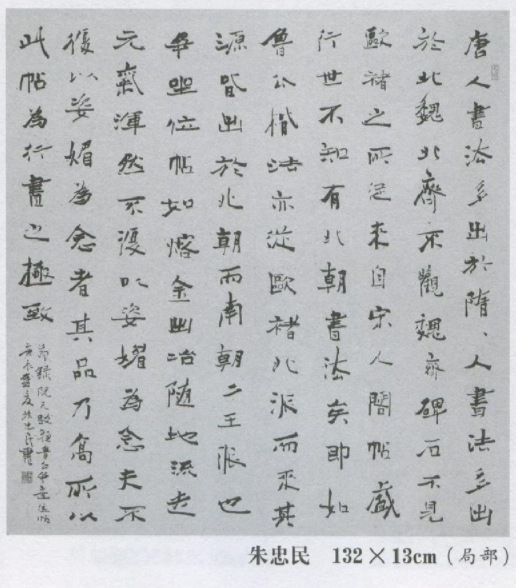 唐人書法多出於隋、人書法多出
於北魏北齊不觀魏齊碑石不見
歐褚之所從來自宋人閣帖盛
行世不知有北朝書法矣即如
魯公楷法亦從歐褚北派而來其
源皆出於北朝而南朝二王派也
爭坐位帖如熔金出冶隨地流走
元氣渾然不復以姿媚為念夫不
復以姿媚為念者其品乃高所以
此帖為行書之極致
節錄阮元跋顏魯公爭座位帖
夏朱忠民書
朱忠民 132×13cm(局部)